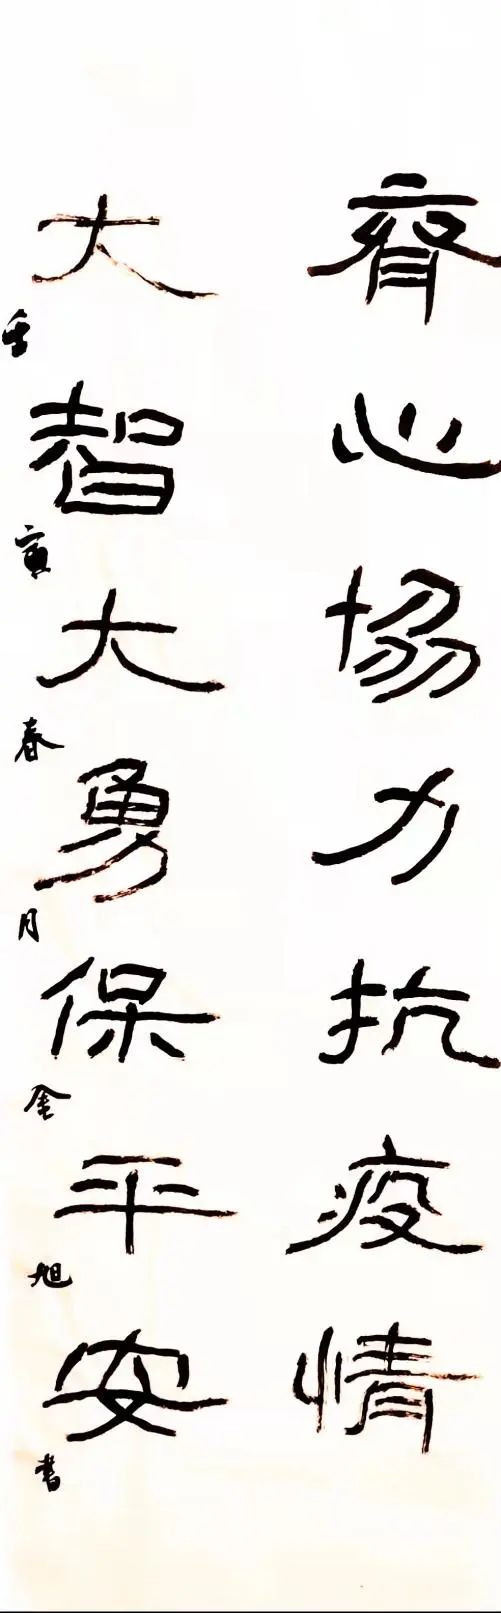 齊心協力抗疫情
大智大勇保平安
寅春月金旭書